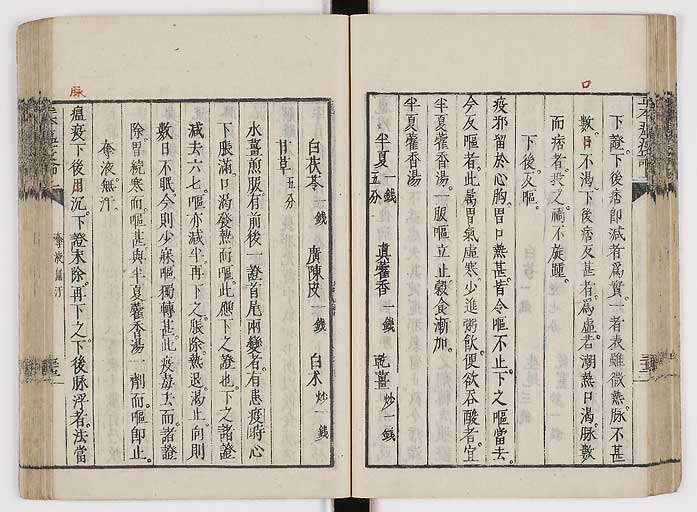 下證下後痞即減者爲實。一者表雖微熱脉不甚
數。口不渴。下後痞反甚者爲虛。若潮熱口渴。脉數
而痞者。投之禍不旋踵。
下後反嘔
疫邪留於心胸。胃口熱甚。皆令嘔不止。下之嘔當去。
今反嘔者。此屬胃氣虛寒。少進粥飲。便欲吞酸者。宜
半夏藿香湯。一服嘔立止。穀食漸加。
半夏藿香湯
半夏一錢五分 真藿香一錢 乾薑炒一錢
白茯苓一錢 廣陳皮一錢 白朮炒一錢
甘草五分
水薑煎服有前後一證首尾兩變者。有患疫時心
下脹滿。口渴發熱而嘔。此應下之證也。下之諸證
減去六七。嘔亦減半。再下之。脹除熱退渴止。向則
數日不眠。今則少寐。嘔獨轉甚。此疫毒去而諸證
除。胃續寒而嘔甚。與半夏藿香湯一劑。而嘔即止。
奪液無汗
瘟疫下後脉沉。下證未除。再下之。下後脉浮者。法當
奪液無汗
脉
口